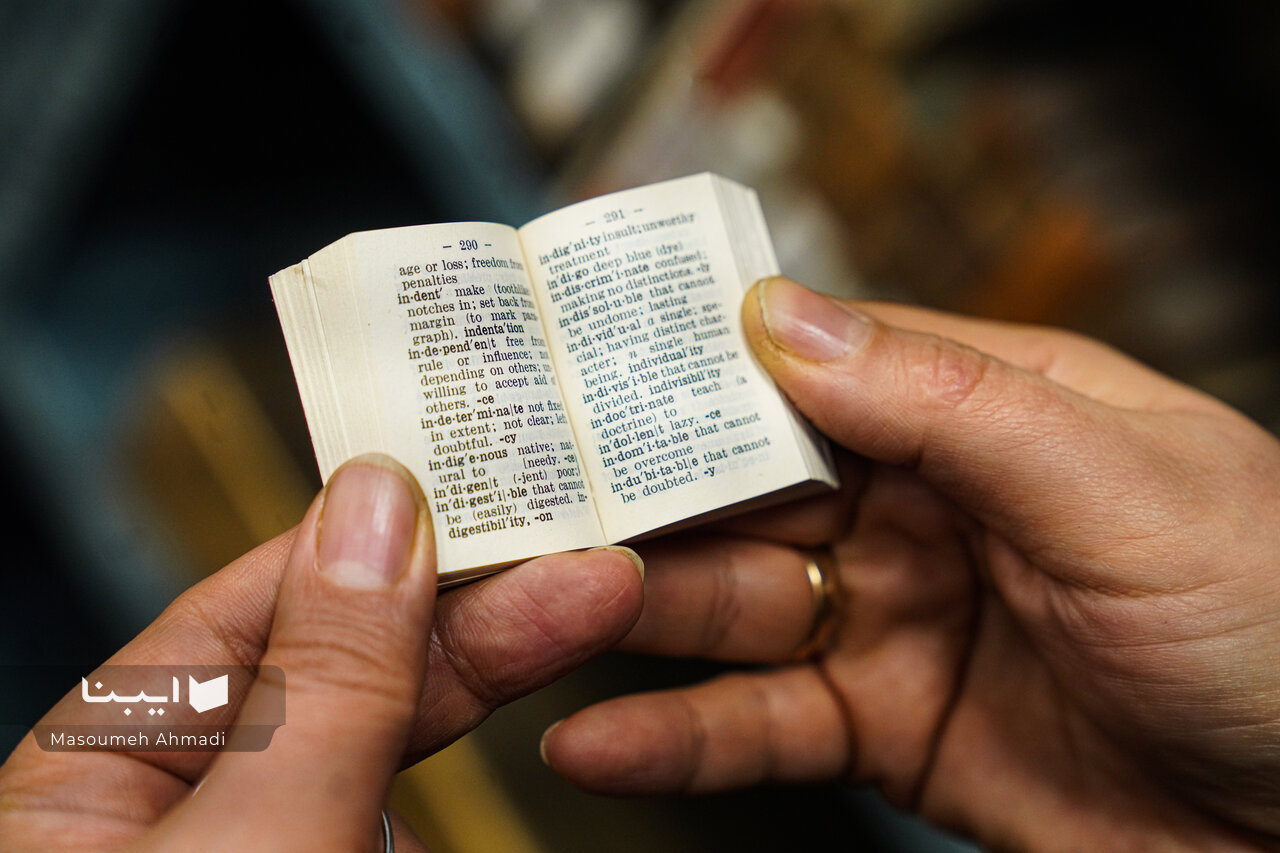 - 290 -
age or loss; freedom from
penalties
in·dent′ make (toothlike
notches in; set back from
margin (to mark para
graph). indenta′tion
in·de·pend′en|t free from
rule or influence; no
depending on others; un
willing to accept aid o
others. -ce
in·de·ter′mi·na|te not fixed
in extent; not clear; left
doubtful. -cy
in·dig′e·nous native; nat-
ural to
(needy. -ce
in′di·gen|t (-jent) poor;
in′di·gest′i|·ble that cannot
be (easily) digested. in-
digestibil′ity, -on
- 291 -
in·dig′ni·ty insult; unworthy
treatment
in′di·go deep blue (dye)
in·dis·crim′i·nate confused;
making no distinctions. -ly
in·dis′sol·u·ble that cannot
be undome; lasting
in·di·vid′u·al a single; spe-
cial; having distinct char-
acter; n single human
being. individual′ity
in·di·vis′i·ble that cannot be
divided. indivisibil′ity
in·doc′tri·nate teach (a
doctrine) to
in′dol·en|t lazy. -ce
in·dom′i·ta·ble that cannot
be overcome
in·du′bi·ta·bl|e that cannot
be doubted. -y
ایبنا
Masoumeh Ahmadi